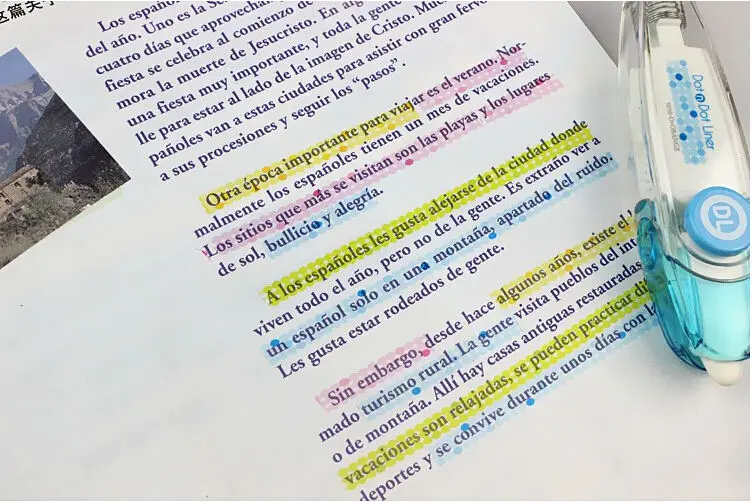 这篇关于
Los españo
del año. Uno es la Se
cuatro días que aprovechan
fiesta se celebra al comienzo de
mora la muerte de Jesucristo. En alg
una fiesta muy importante, y toda la gente
lle para estar al lado de la imagen de Cristo. Muc
pañoles van a estas ciudades para asistir con gran fervo
a sus procesiones y seguir los “pasos”.
Otra época importante para viajar es el verano. Nor-
malmente los españoles tienen un mes de vacaciones.
Los sitios que más se visitan son las playas y los lugares
de sol, bullicio y alegría.
A los españoles les gusta alejarse de la ciudad donde
viven todo el año, pero no de la gente. Es extraño ver a
un español solo en una montaña, apartado del ruido.
Les gusta estar rodeados de gente.
Sin embargo, desde hace algunos años, existe el
mado turismo rural. La gente visita pueblos del int
o de montaña. Allí hay casas antiguas restauradas
vacaciones son relajadas, se pueden practicar di
deportes y se convive durante unos días con la
Dot n Dot Liner
DL